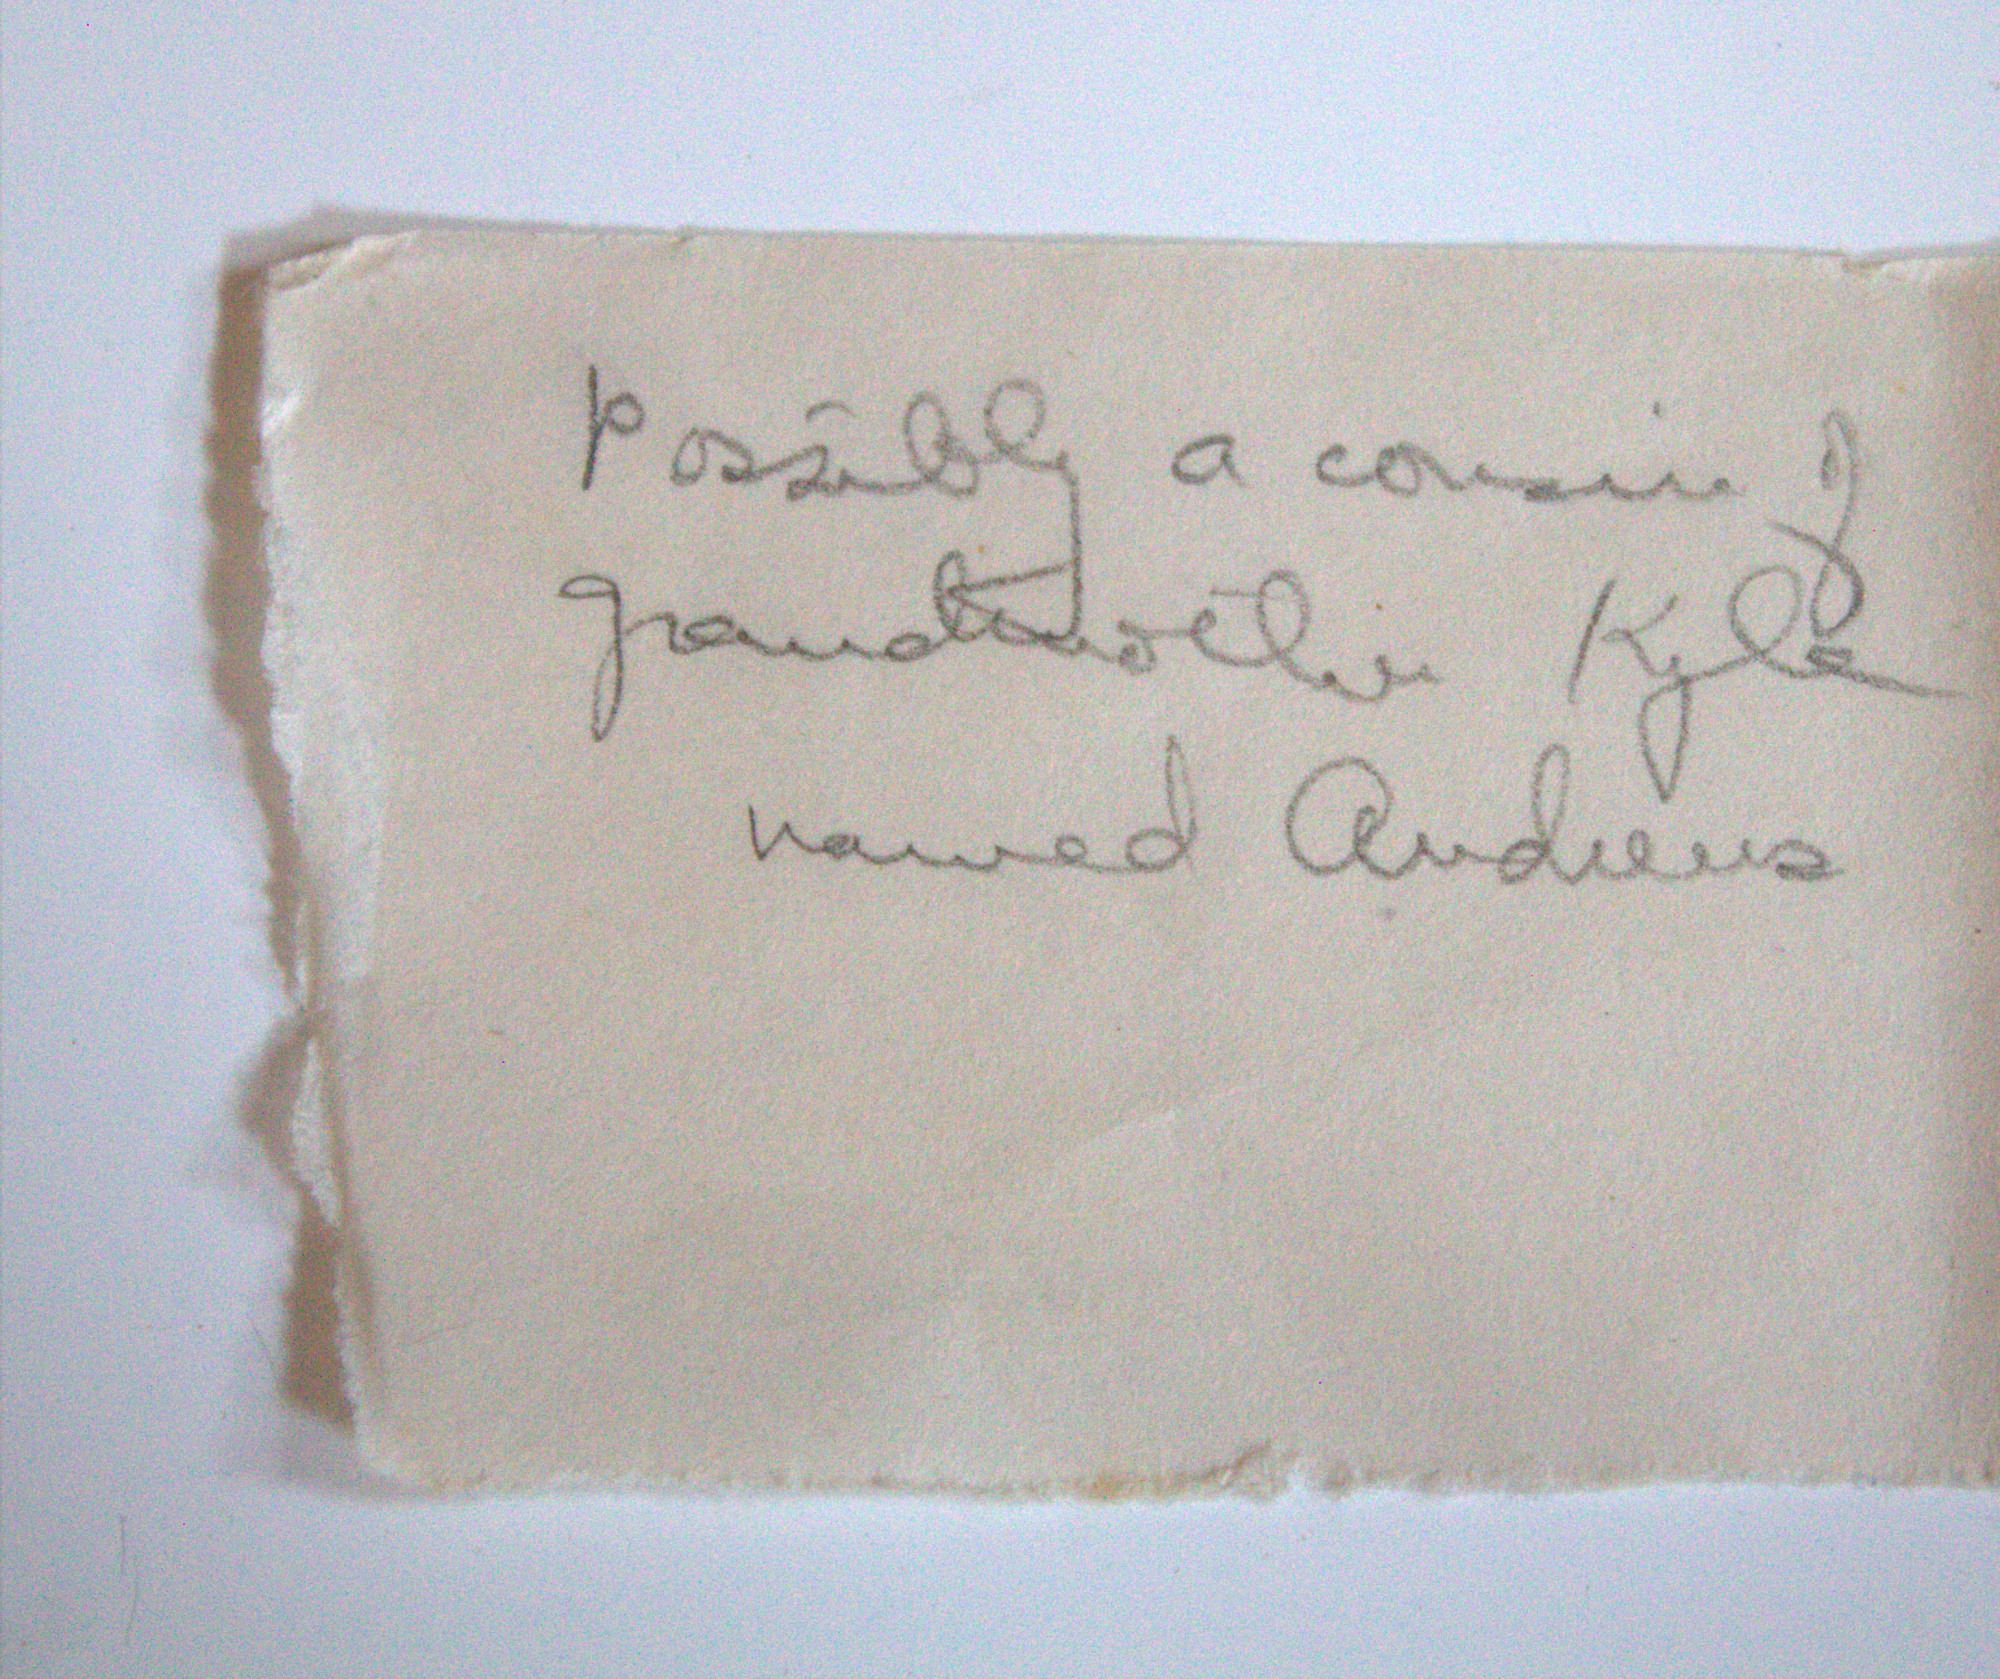 Possibly a cousin of
grandmother Kyle
named Andrews